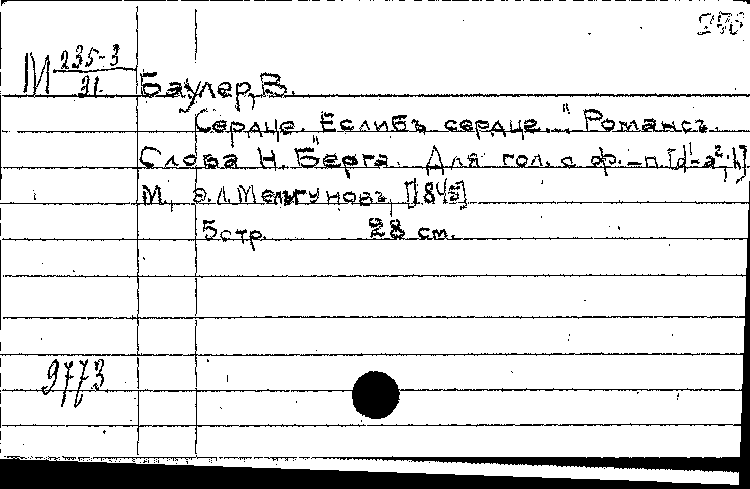 М 235-3
31
Баулер, В.
Сердце. "Еслибъ сердце..." Романсъ.
Слова Н. Берга. Для гол. с ф.-п. [d¹-a²; h]
М., Э.Л. Мельгуновъ, [1845]
5 стр. 28 см.
9773